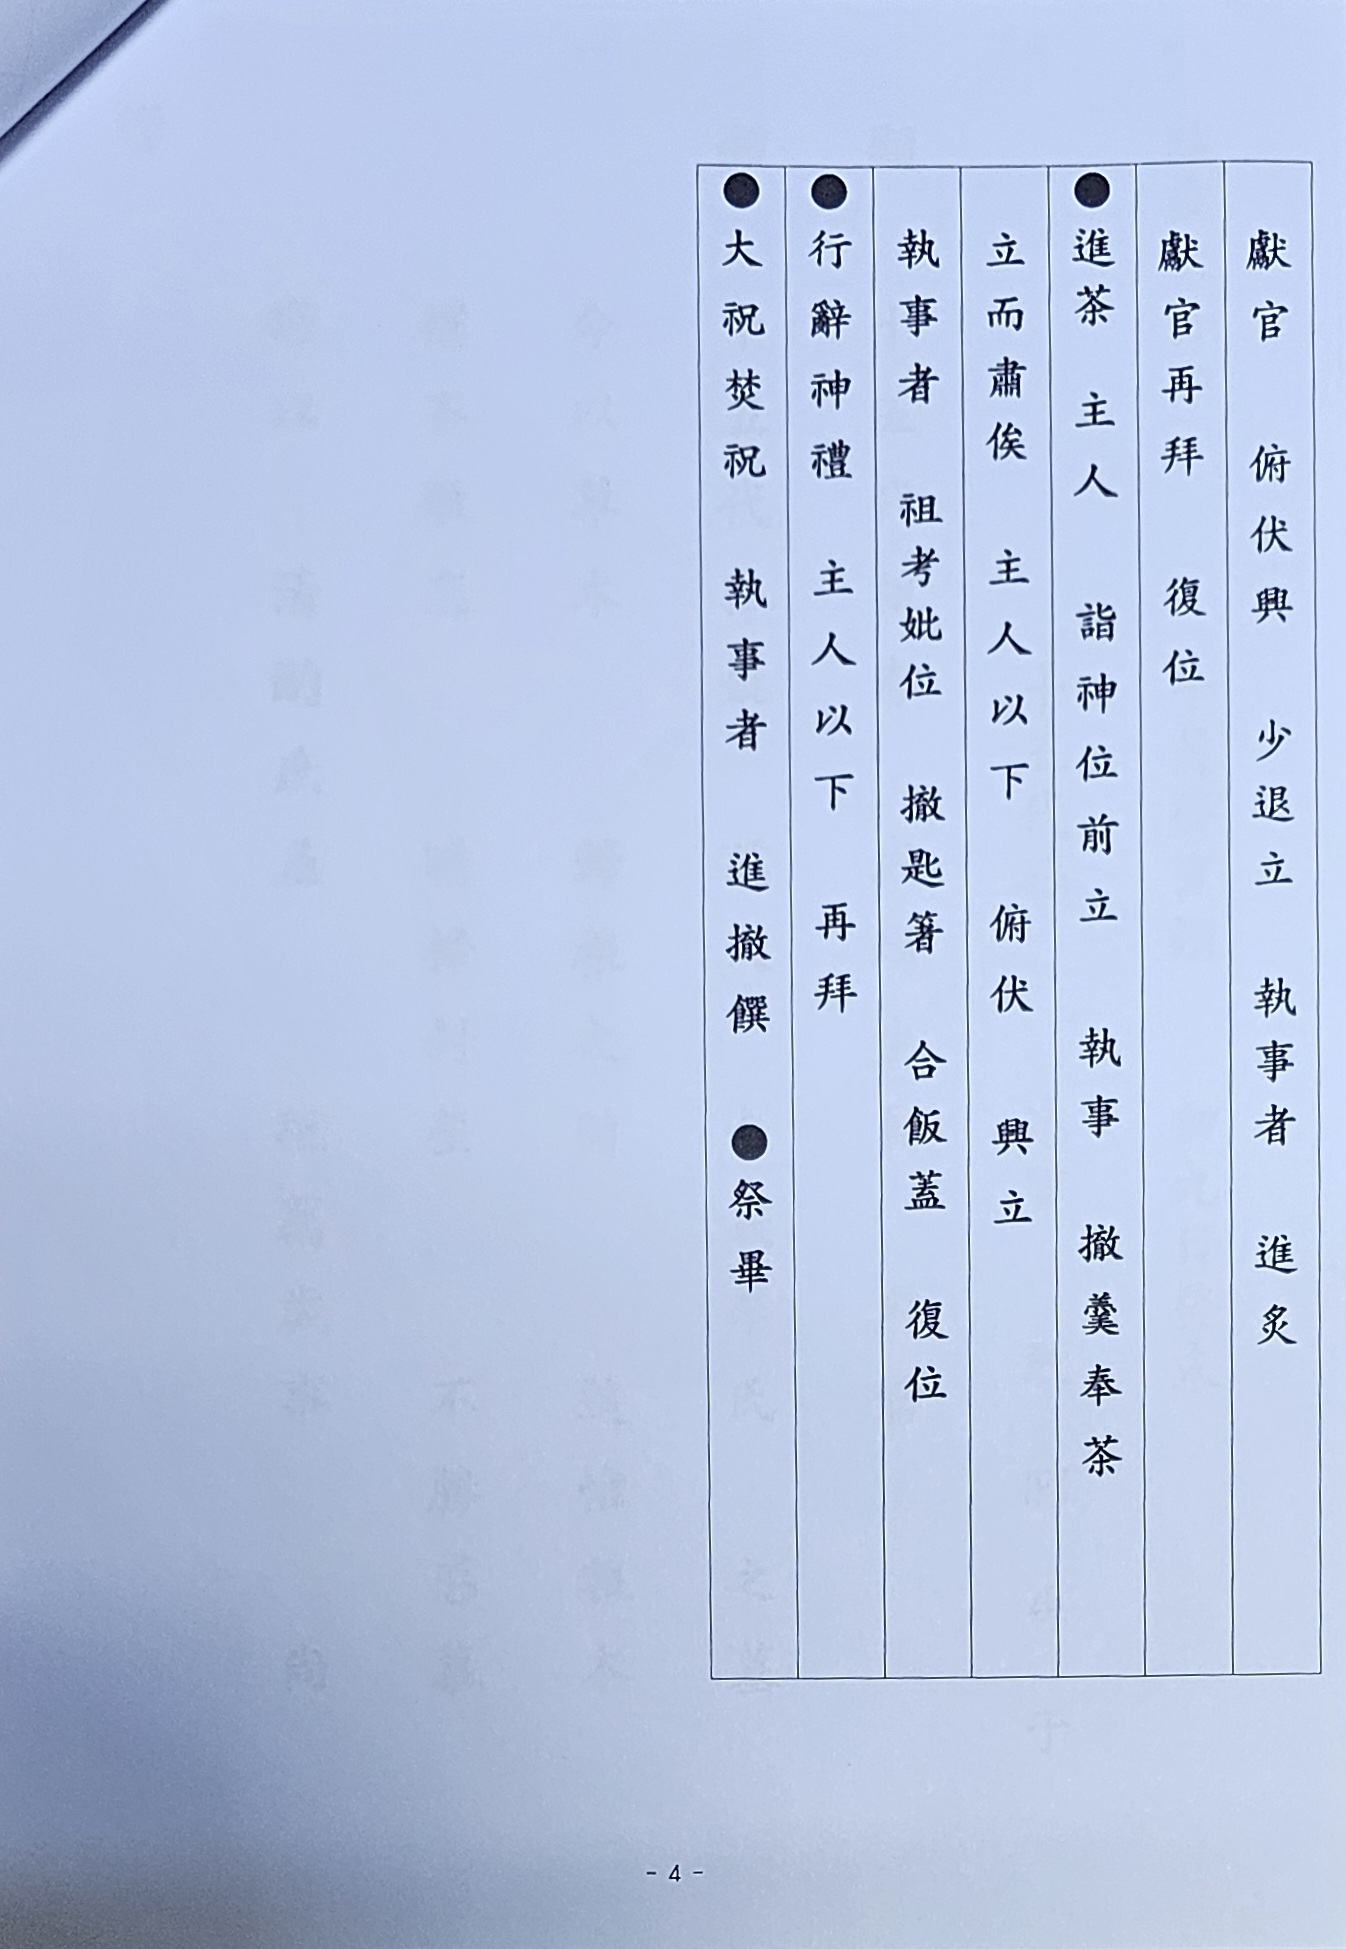 獻官 俯伏興 少退立 執事者 進炙
獻官再拜 復位
●進茶 主人 詣神位前立 執事 撤羹奉茶
立而肅俟 主人以下 俯伏 興立
執事者 祖考妣位 撤匙箸 合飯蓋 復位
●行辭神禮 主人以下 再拜
●大祝焚祝 執事者 進撤饌 ●祭畢
- 4 -